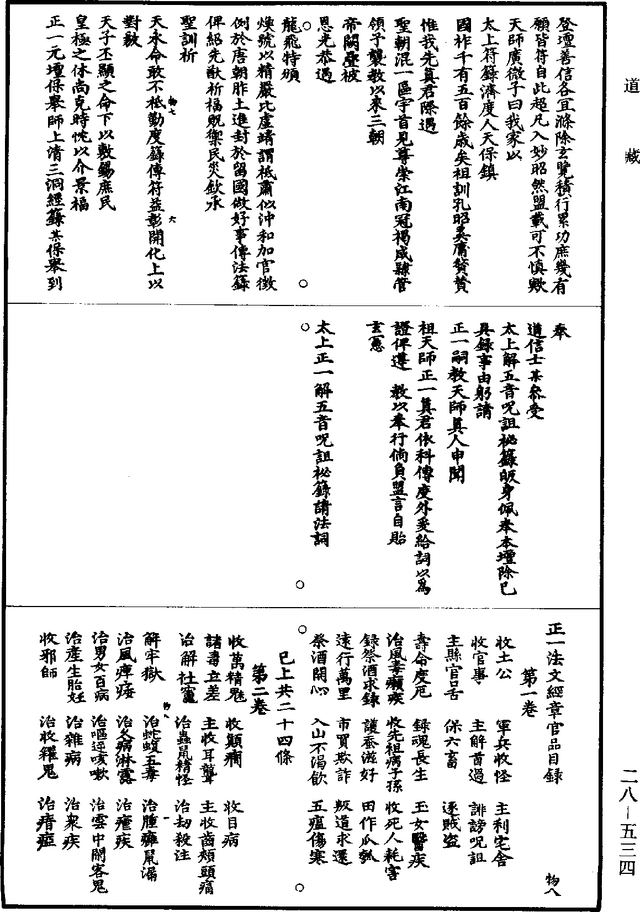 道藏
登壇善信各宜滌除玄覽積行累功庶幾有
願皆符自此超凡入妙昭然盟載可不慎歟
天師廣微子曰我家以
太上符籙濟度人天保鎮
國祚千有五百餘歲矣祖訓孔昭奚庸贅贊
惟我先真君際遇
聖朝混一區宇首見尊崇江南冠褐咸隸管
領子襲教以來三朝
帝闕疊被
恩光恭遇
龍飛特頒
煥號以精嚴比虛靖謂祗肅似沖和加官徵
例於唐朝胙土進封於留國做好事傳法籙
俾紹先猷祈福貺禦民災欽承
聖訓祈
天永命敢不祗勤度籙傳符益彰開化上以
對敭
天子丕顯之命下以敷錫庶民
皇極之休尚克時忱以介景福
正一元壇保舉師上清三洞經籙某保舉到
物七
六
奉
道信士某參受
太上解五音呪詛祕籙皈身佩奉本壇除已
具錄事由躬請
正一嗣教天師真人申聞
祖天師正一真君依科傳度外爰給詞以為
證俾遵 教以奉行倘負盟言自貽
玄憲
太上正一解五音呪詛祕籙請法詞
正一法文經章官品目錄
物八
第一卷
收土公 軍兵收怪 主利宅舍
收官事 主解首過 誹謗呪詛
主縣官口舌 保六畜 逐賊盜
壽命度厄 錄魂長生 玉女醫疾
治風毒癩疾 收先祖病子孫 收死人耗害
錄祭酒求錄 護蚕滋好 田作瓜瓠
遠行萬里 市買欺詐 叛道求還
祭酒開心 入山不渴飲 五瘟傷寒
已上共二十四條
第二卷
收萬精魅 收顛癇 收目病
諸毒立差 主收耳聾 主收齒頰頭痛
治解社竈 治蟲鼠精怪 治劫殺注
解牢獄 治蛇蝮五毒 治腫癰鼠漏
治風痺痿 治久病淋露 治瘧疾
治男女百病 治嘔逆咳嗽 治雲中閉客鬼
治產生胎妊 治雜病 治衆疾
收邪師 治收繹鬼 治瘖瘂
二八－五三四